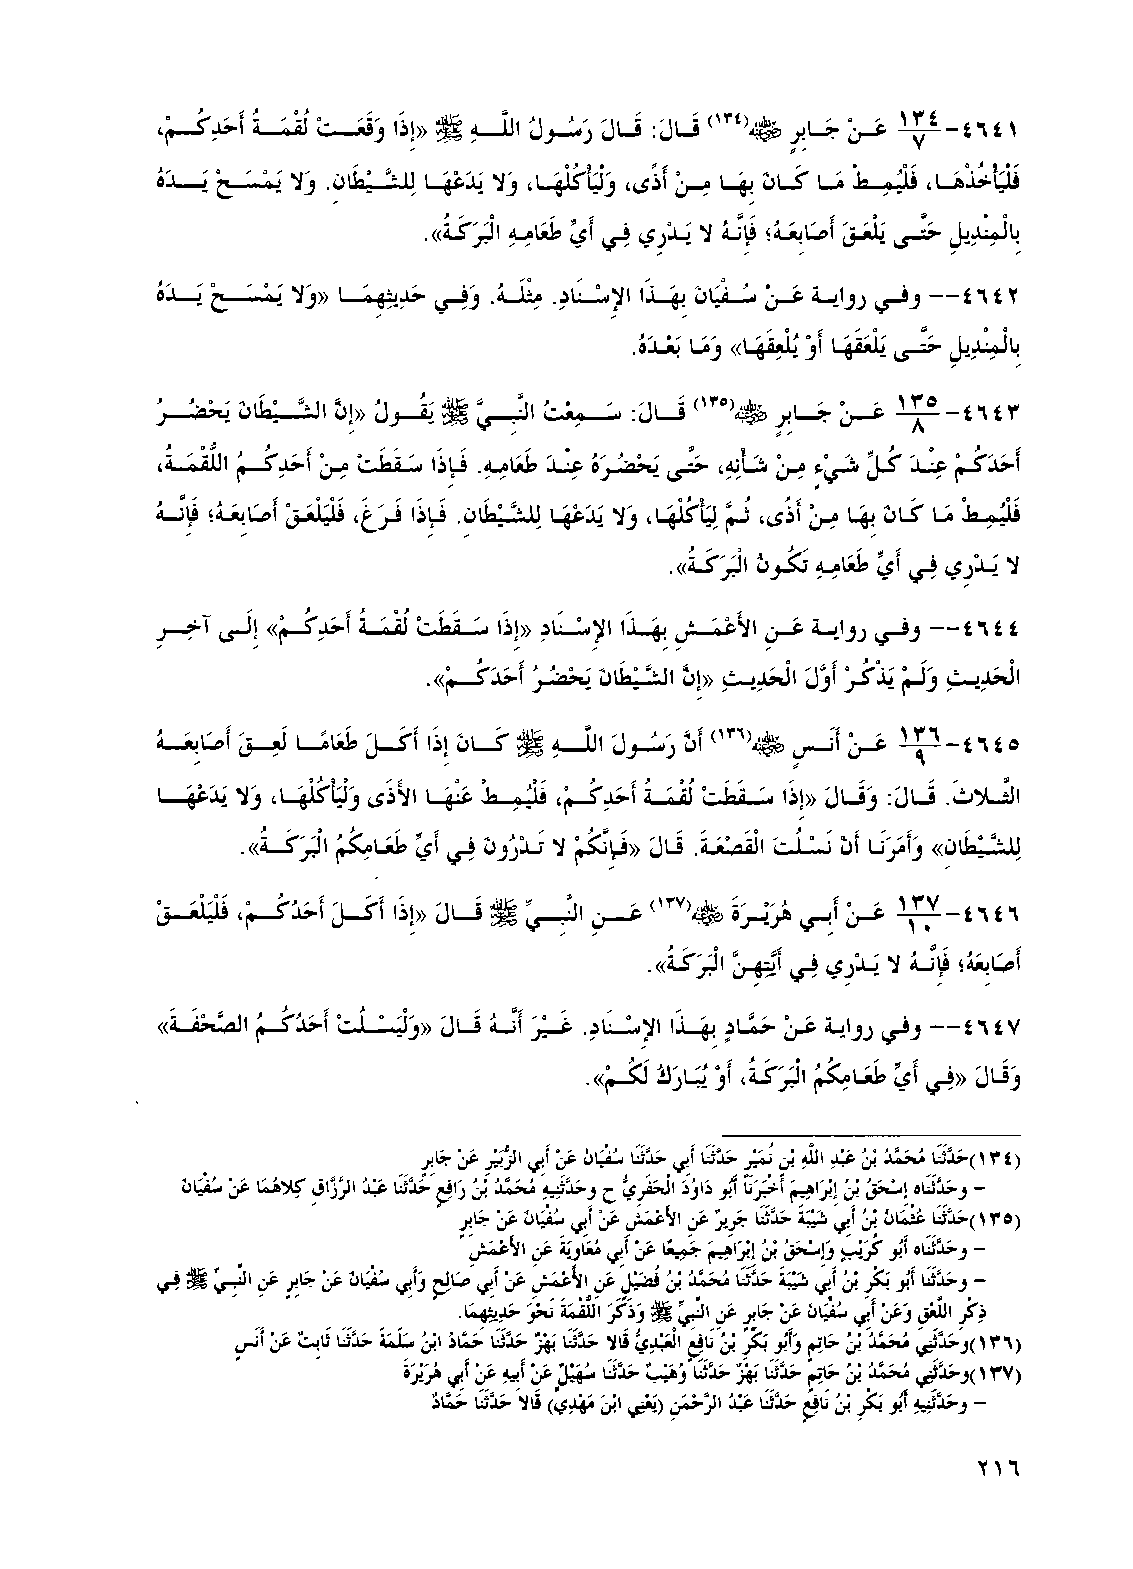 ٤٦٤١- ١٣٤/٧ عَنْ جَابِرٍ ﷺ(١٣٤) قَالَ: قَالَ رَسُولُ اللَّهِ ﷺ «إِذَا وَقَعَتْ لُقْمَةُ أَحَدِكُمْ،
فَلْيَأْخُذْهَا، فَلْيُمِطْ مَا كَانَ بِهَا مِنْ أَذًى، وَلْيَأْكُلْهَا، وَلا يَدَعْهَا لِلشَّيْطَانِ. وَلا يَمْسَحْ يَدَهُ
بِالْمِنْدِيلِ حَتَّى يَلْعَقَ أَصَابِعَهُ؛ فَإِنَّهُ لا يَدْرِي فِي أَيِّ طَعَامِهِ الْبَرَكَةُ».
٤٦٤٢-- وفي رواية عَنْ سُفْيَانَ بِهَذَا الإِسْنَادِ. مِثْلَهُ. وَفِي حَدِيثِهِمَا «وَلا يَمْسَحْ يَدَهُ
بِالْمِنْدِيلِ حَتَّى يَلْعَقَهَا أَوْ يُلْعِقَهَا» وَمَا بَعْدَهُ.
٤٦٤٣- ١٣٥/٨ عَنْ جَابِرٍ ﷺ(١٣٥) قَالَ: سَمِعْتُ النَّبِيَّ ﷺ يَقُولُ «إِنَّ الشَّيْطَانَ يَحْضُرُ
أَحَدَكُمْ عِنْدَ كُلِّ شَيْءٍ مِنْ شَأْنِهِ، حَتَّى يَحْضُرَهُ عِنْدَ طَعَامِهِ. فَإِذَا سَقَطَتْ مِنْ أَحَدِكُمُ اللُّقْمَةُ،
فَلْيُمِطْ مَا كَانَ بِهَا مِنْ أَذًى، ثُمَّ لِيَأْكُلْهَا، وَلا يَدَعْهَا لِلشَّيْطَانِ. فَإِذَا فَرَغَ، فَلْيَلْعَقْ أَصَابِعَهُ؛ فَإِنَّهُ
لا يَدْرِي فِي أَيِّ طَعَامِهِ تَكُونُ الْبَرَكَةُ».
٤٦٤٤-- وفي رواية عَنِ الأَعْمَشِ بِهَذَا الإِسْنَادِ «إِذَا سَقَطَتْ لُقْمَةُ أَحَدِكُمْ» إِلَى آخِرِ
الْحَدِيثِ وَلَمْ يَذْكُرْ أَوَّلَ الْحَدِيثِ «إِنَّ الشَّيْطَانَ يَحْضُرُ أَحَدَكُمْ».
٤٦٤٥- ١٣٦/٩ عَنْ أَنَسٍ ﷺ(١٣٦) أَنَّ رَسُولَ اللَّهِ ﷺ كَانَ إِذَا أَكَلَ طَعَامًا لَعِقَ أَصَابِعَهُ
الثَّلاثَ. قَالَ: وَقَالَ «إِذَا سَقَطَتْ لُقْمَةُ أَحَدِكُمْ، فَلْيُمِطْ عَنْهَا الأَذَى وَلْيَأْكُلْهَا، وَلا يَدَعْهَا
لِلشَّيْطَانِ» وَأَمَرَنَا أَنْ نَسْلُتَ الْقَصْعَةَ. قَالَ «فَإِنَّكُمْ لا تَدْرُونَ فِي أَيِّ طَعَامِكُمُ الْبَرَكَةُ».
٤٦٤٦- ١٣٧/١٠ عَنْ أَبِي هُرَيْرَةَ ﷺ(١٣٧) عَنِ النَّبِيِّ ﷺ قَالَ «إِذَا أَكَلَ أَحَدُكُمْ، فَلْيَلْعَقْ
أَصَابِعَهُ؛ فَإِنَّهُ لا يَدْرِي فِي أَيَّتِهِنَّ الْبَرَكَةُ».
٤٦٤٧-- وفي رواية عَنْ حَمَّادٍ بِهَذَا الإِسْنَادِ. غَيْرَ أَنَّهُ قَالَ «وَلْيَسْلُتْ أَحَدُكُمُ الصَّحْفَةَ»
وَقَالَ «فِي أَيِّ طَعَامِكُمُ الْبَرَكَةُ، أَوْ يُبَارَكُ لَكُمْ».
(١٣٤)حَدَّثَنَا مُحَمَّدُ بْنُ عَبْدِ اللَّهِ بْنِ نُمَيْرٍ حَدَّثَنَا أَبِي حَدَّثَنَا سُفْيَانُ عَنْ أَبِي الزُّبَيْرِ عَنْ جَابِرٍ
– وحَدَّثَنَاه إِسْحَقُ بْنُ إِبْرَاهِيمَ أَخْبَرَنَا أَبُو دَاوُدَ الْحَفَرِيُّ ح وحَدَّثَنِيهِ مُحَمَّدُ بْنُ رَافِعٍ حَدَّثَنَا عَبْدُ الرَّزَّاقِ كِلاهُمَا عَنْ سُفْيَانَ
(١٣٥)حَدَّثَنَا عُثْمَانُ بْنُ أَبِي شَيْبَةَ حَدَّثَنَا جَرِيرٌ عَنِ الأَعْمَشِ عَنْ أَبِي سُفْيَانَ عَنْ جَابِرٍ
– وحَدَّثَنَاه أَبُو كُرَيْبٍ وَإِسْحَقُ بْنُ إِبْرَاهِيمَ جَمِيعًا عَنْ أَبِي مُعَاوِيَةَ عَنِ الأَعْمَشِ
– وحَدَّثَنَا أَبُو بَكْرِ بْنُ أَبِي شَيْبَةَ حَدَّثَنَا مُحَمَّدُ بْنُ فُضَيْلٍ عَنِ الأَعْمَشِ عَنْ أَبِي صَالِحٍ وَأَبِي سُفْيَانَ عَنْ جَابِرٍ عَنِ النَّبِيِّ ﷺ فِي
ذِكْرِ اللَّعْقِ وَعَنْ أَبِي سُفْيَانَ عَنْ جَابِرٍ عَنِ النَّبِيِّ ﷺ وَذَكَرَ اللُّقْمَةَ نَحْوَ حَدِيثِهِمَا.
(١٣٦)وحَدَّثَنِي مُحَمَّدُ بْنُ حَاتِمٍ وَأَبُو بَكْرِ بْنُ نَافِعٍ الْعَبْدِيُّ قَالا حَدَّثَنَا بَهْزٌ حَدَّثَنَا حَمَّادُ ابْنُ سَلَمَةَ حَدَّثَنَا ثَابِتٌ عَنْ أَنَسٍ
(١٣٧)وحَدَّثَنِي مُحَمَّدُ بْنُ حَاتِمٍ حَدَّثَنَا بَهْزٌ حَدَّثَنَا وُهَيْبٌ حَدَّثَنَا سُهَيْلٌ عَنْ أَبِيهِ عَنْ أَبِي هُرَيْرَةَ
– وحَدَّثَنِيهِ أَبُو بَكْرِ بْنُ نَافِعٍ حَدَّثَنَا عَبْدُ الرَّحْمَنِ (يَعْنِي ابْنَ مَهْدِيٍّ) قَالا حَدَّثَنَا حَمَّادٌ
٢١٦